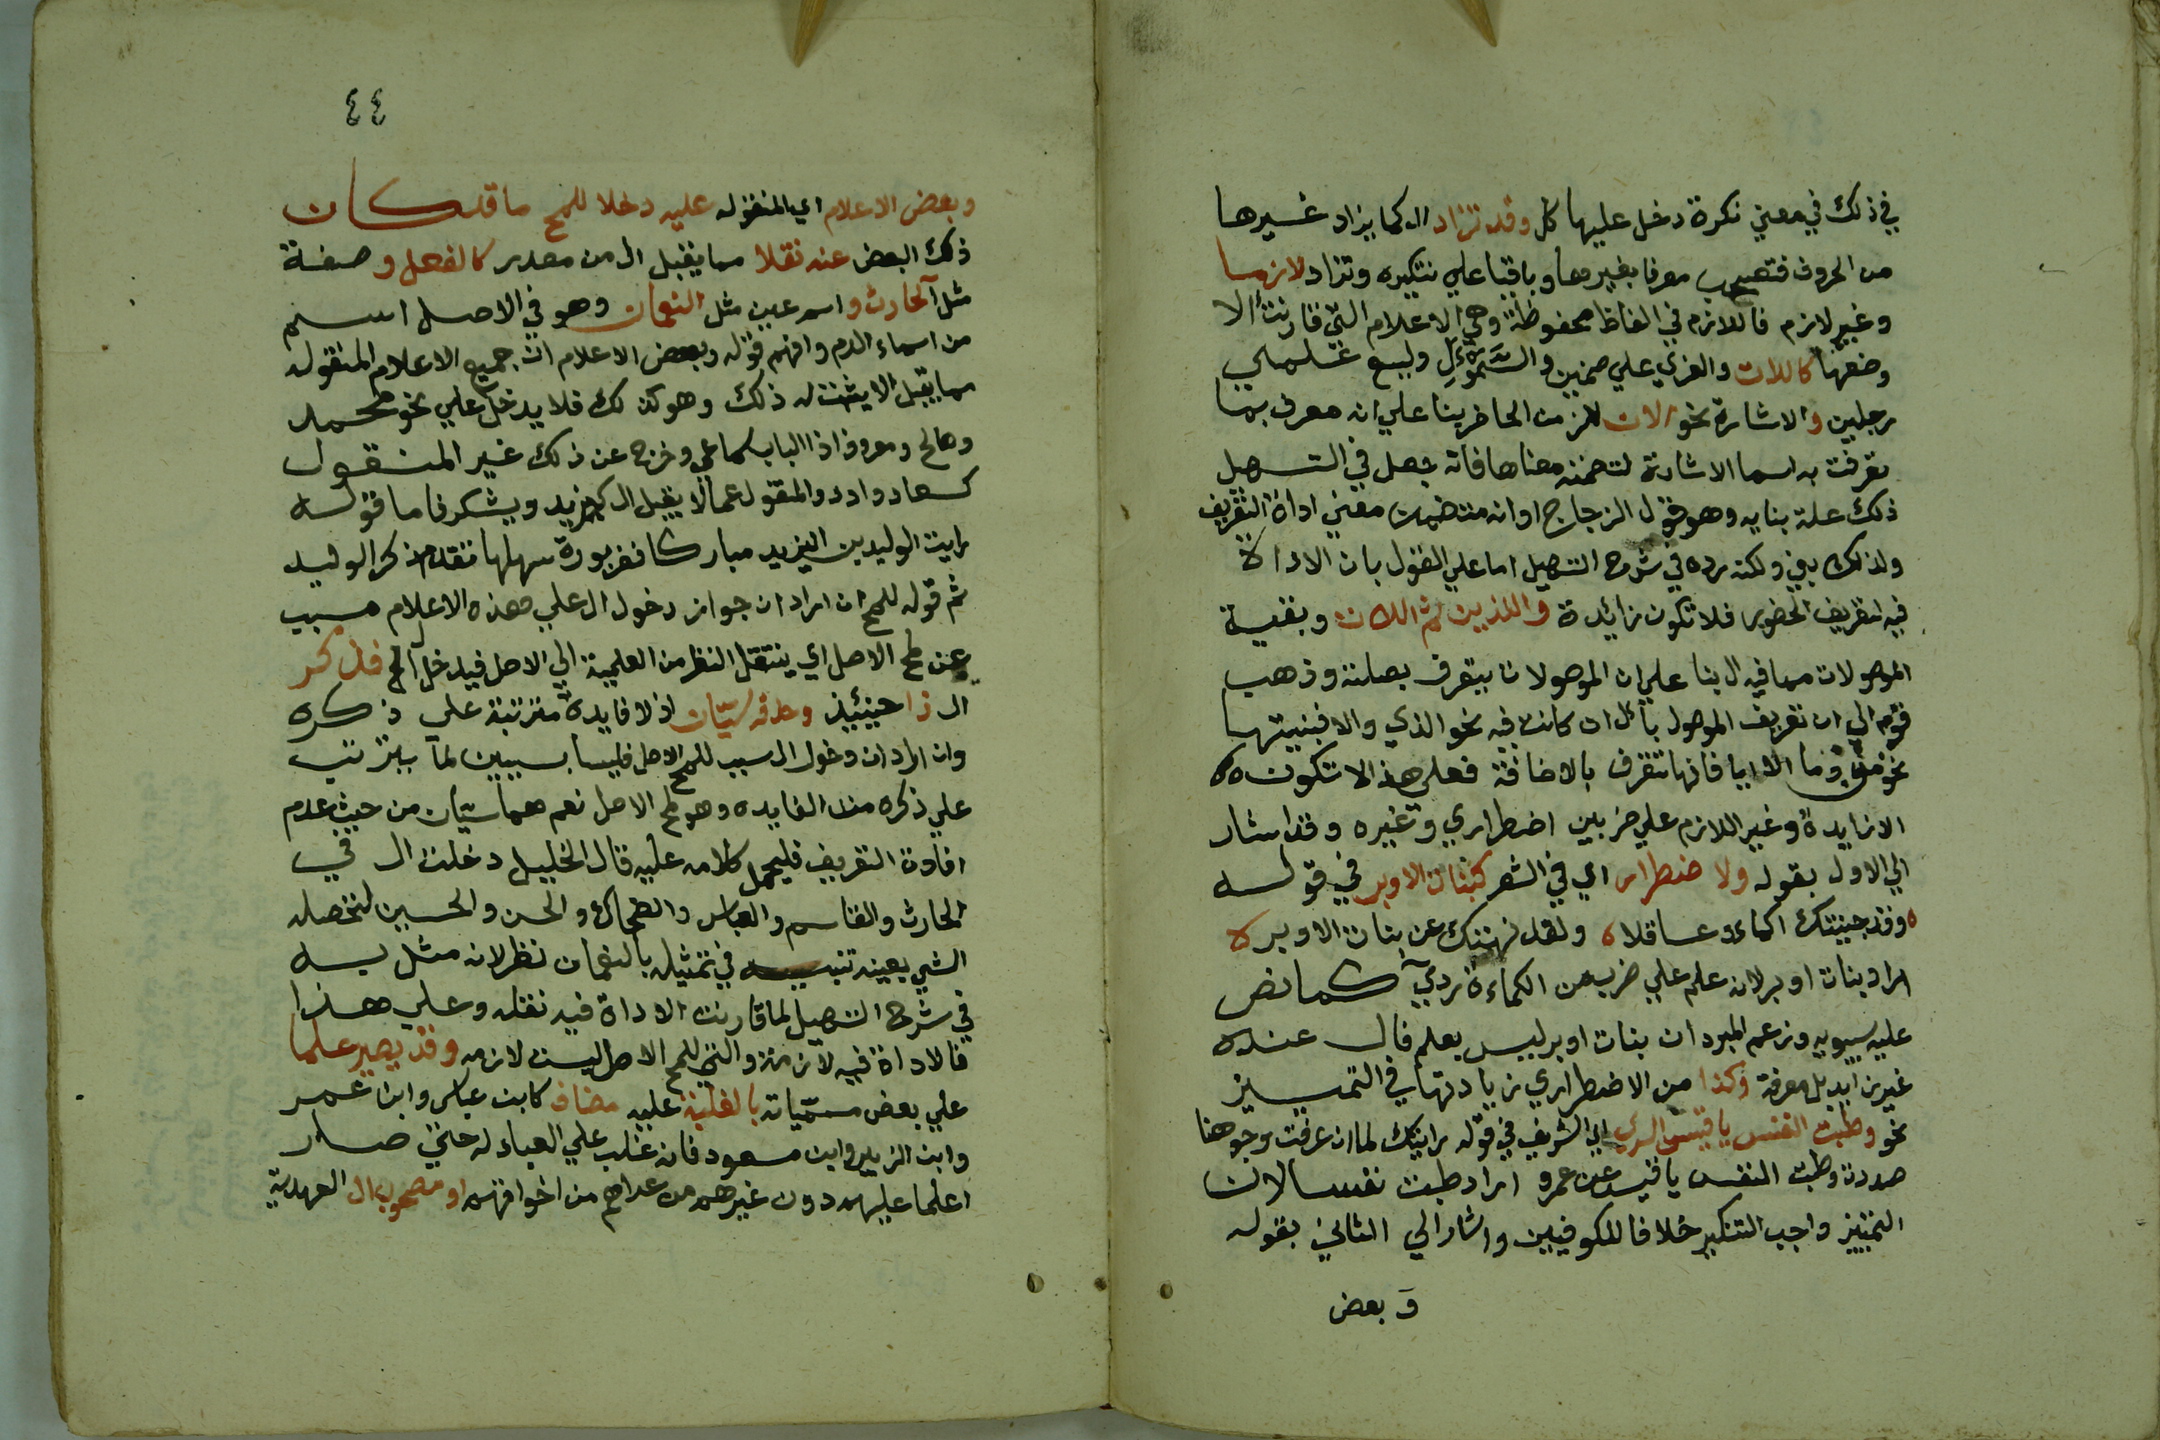 في ذلك في معني نكرة دخل عليها كل وقد تزاد ال كما يزاد غيرها
من الحروف فتصحب معرفا بغيرها وباقيا علي تنكيره وتزاد لازما
وغير لازم فاللازم في الفاظ محفوظة وهي الاعلام التي قارنت ال
وضعها كاللات والعزي علي صنمين والسموئل واليسع علمي
رجلين والاشارة نحو الان للزمن الحاضر بنا علي انه معرف بما
تعرفت به اسما الاشارة لتضمنه معناها فانه جعل في التسهيل
ذلك علة بنايه وهو قول الزجاج او انه متضمن معني اداة التعريف
ولذلك بني ولكنه رده في شرح التسهيل اما علي القول بان الاداة
فيه لتعريف الحضور فلا تكون زائدة والذين ثم اللات وبقية
الموصولات مما فيه ال بنا علي ان الموصولات يتعرف بصلته وذهب
قوم الي ان تعريف الموصول بأل ان كانت فيه نحو الذي والا فبنيتها
نحو من وما الا ايا فانها تتعرف بالاضافة فعلي هذا لا تكون ه
ال زايدة وغير اللازم علي ضربين اضطراري وغيره وقد اشار
الي الاول بقوله ولاضطرار اي في الشعر كبنات الاوبر في قوله
ه وقد جنيتك اكماء وعساقلا ه ولقد نهيتك عن بنات الاوبر ه
اراد بنات اوبر لانه علم علي ضرب من الكماءة ردي كما نص
عليه سيبويه وزعم المبرد ان بنات اوبر ليس بعلم فال عنده
غير زايد بل معرفة وكذا من الاضطراري زيادتها في التمييز
نحو وطبت النفس يا قيس السري اي الشريف في قوله رايتك لما ان عرفت وجوهنا
صددت وطبت النفس يا قيس عن عمرو اراد طبت نفسا لان
التمييز واجب التنكير خلافا للكوفيين واشار الي الثاني بقوله
وَ بعض
٤٤
وبعض الاعلام اي المنقوله عليه دخلا للمح ما قد كان
ذلك البعض عنه نقلا مما يقبل ال من مصدر كالفضل وصفة
مثل الحارث واسم عين مثل النعمان وهو في الاصل اسم
من اسماء الدم وافهم قوله وبعض الاعلام ان جميع الاعلام المنقوله
مما يقبل ال لا يثبت له ذلك وهو كذلك فلا يدخل علي نحو محمد
وصالح ومعروف اذ الباب سماعي وخرج عن ذلك غير المنقول
كسعاد وادد والمنقول عما لا يقبل ال كيزيد ويشكر فاما قوله
رايت الوليد بن اليزيد مباركا فضرورة سهلها تقدم ذكر الوليد
ثم قوله للمح ان اراد ان جواز دخول ال علي هذه الاعلام مسبب
عن لمح الاصل اي ينتقل النظر من العلمية الي الاصل فيدخل ال فذكر
ال ذا حينئيذ وحذفه سيّان اذ لا فايدة مترتبة علي ذكره
وان اراد ان دخول ال سبب للمح الاصل فليسا بسيين لما يترتب
علي ذكره من الفايده وهو لمح الاصل نعم هما سيّان من حيث عدم
افادة التعريف فليحمل كلامه عليه قال الخليل دخلت ال في
الحارث والقاسم والعباس والضحاك والحسن والحسين لتخصله
الشي بعينه تنبيـــه في تمثيله بالنعمان نظر لانه مثل به
في شرح التسهيل لما قارنت الاداة فيه نقله وعلي هذا
فالاداة فيه لازمة والتي للمح الاصل ليست لازمه وقد يصير علما
علي بعض مسمّياته بالغلبة عليه مضاف كابن عباس وابن عمر
وابن الزبير وابن مسعود فانه غلب علي العبادله حتي صار
اعلما عليهم دون غيرهم من عداهم من اخواتهم او مصحوب ال العهدية